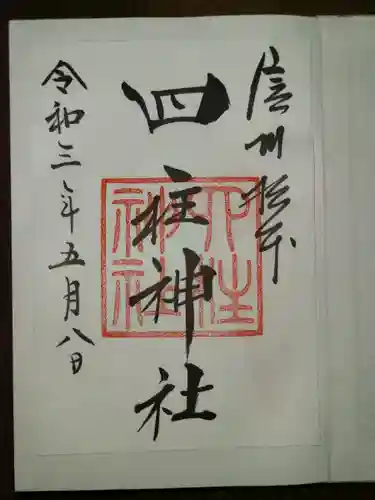 信州松本
四柱神社
令和三年五月八日
四柱神社